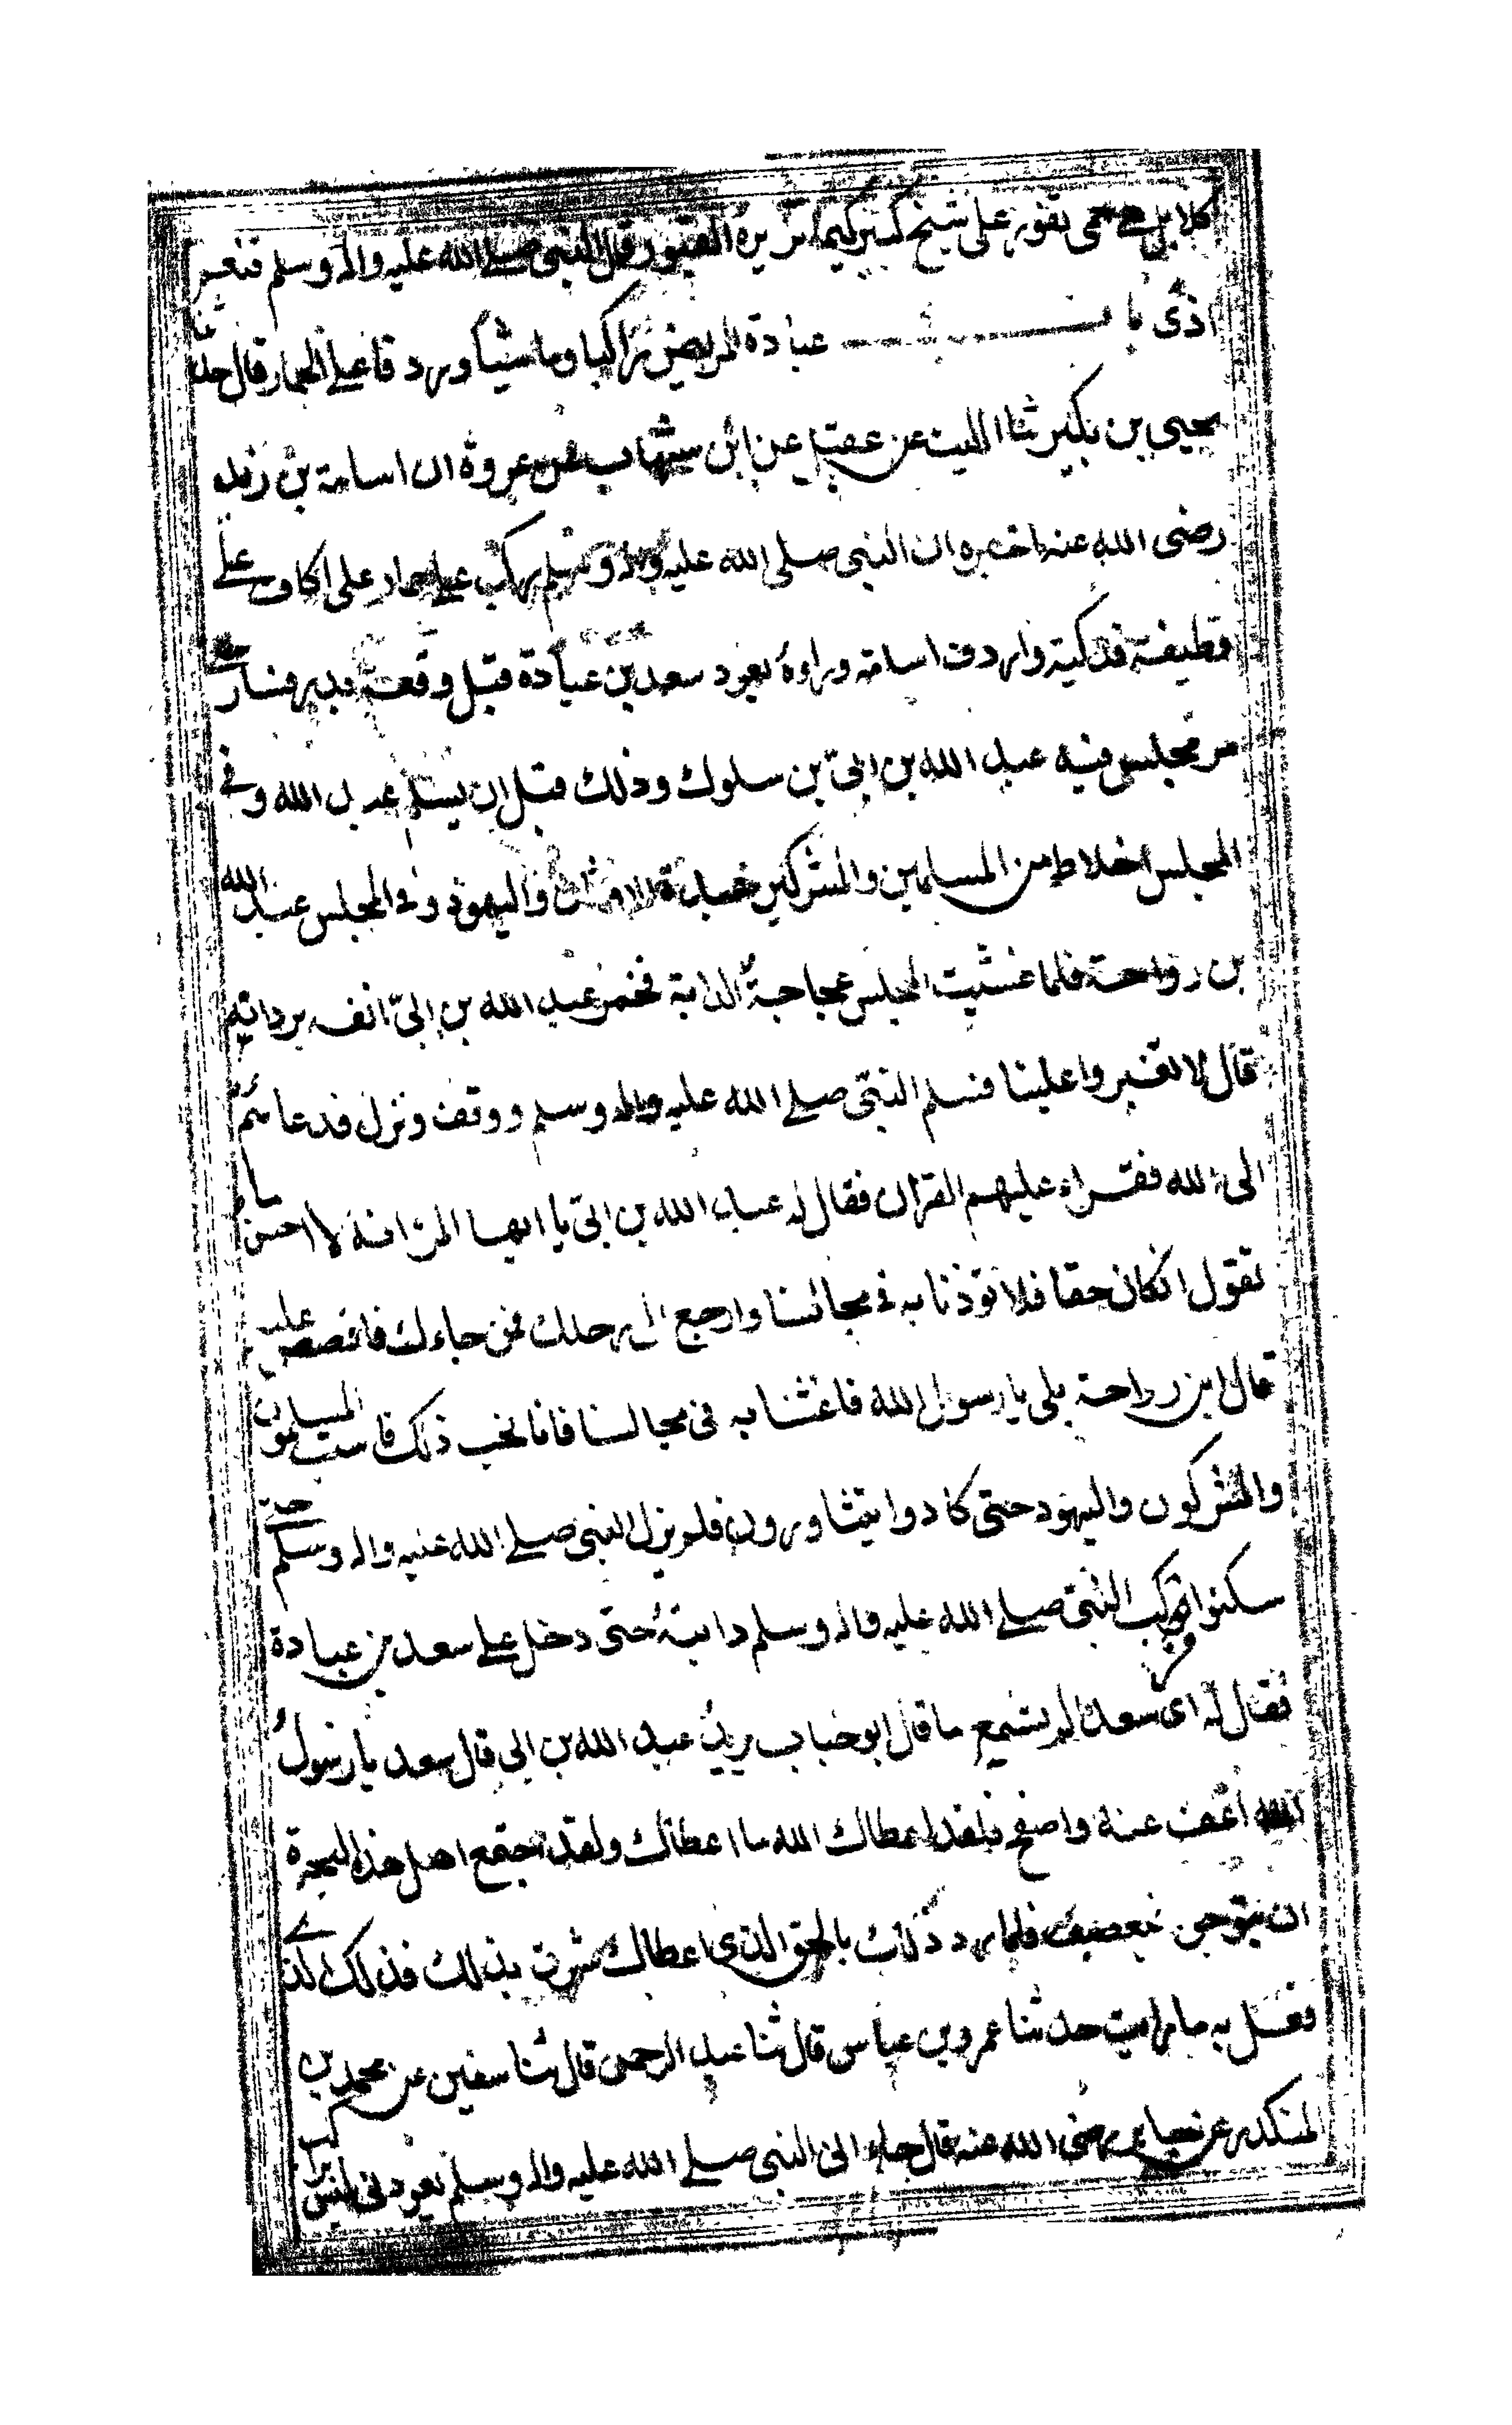 كلا بل هى حمى تفور على شيخ كبير كيما تزيره القبور قال النبى صلى الله عليه واله وسلم فنعم
اذى با عيادة المريض راكبا وماشيا وردفا على الحمار قال حدثنا
يحيى بن بكير ثنا الليث عن عقيل عن ابن شهاب عن عروة ان اسامة بن زيد
رضى الله عنه اخبره ان النبى صلى الله عليه واله وسلم ركب على حمار على اكاف على
قطيفة فدكية واردف اسامة وراءه يعود سعد بن عبادة قبل وقعة بدر فسار حتى
مر بمجلس فيه عبد الله بن ابىّ بن سلول وذلك قبل ان يسلم عبد الله وفى
المجلس اخلاط من المسلمين والمشركين عبدة الاوثان واليهود وفى المجلس عبد الله
بن رواحة فلما غشيت المجلس عجاجة الدابة فخمر عبد الله بن ابىّ انفه بردائه
قال لا تغبروا علينا فسلم النبىّ صلى الله عليه واله وسلم ووقف ونزل فدعاهم
الى الله فقراء عليهم القران فقال له عبد الله بن ابىّ يا ايها المرء انه لا احسن مما
تقول ان كان حقا فلا تؤذنا به فى مجالسنا وارجع الى رحلك فمن جاءك فاقصص عليه
قال ابن رواحة بلى يا رسول الله فاغشنا به فى مجالسنا فانا نحب ذلك فاستب المسلمون
والمشركون واليهود حتى كادوا يتثاورون فلم يزل النبى صلى الله عليه واله وسلم حتى
سكنوا فركب النبىّ صلى الله عليه واله وسلم دابته حتى دخل على سعد بن عبادة
فقال له اى سعد الم تسمع ما قال ابو حباب يريد عبد الله بن ابى قال سعد يا رسول
الله اعف عنه واصفح فلقد اعطاك الله ما اعطاك ولقد اجتمع اهل هذه البحرة
ان يتوجوه فيعصبوه فلما رد ذلك بالحق الذى اعطاك شرق بذلك فذلك الذى
فعل به ما رايت حدثنا عمرو بن عباس قال ثنا عبد الرحمن قال ثنا سفين عن محمد بن
المنكدر عن جابر رضى الله عنه قال جاء الى النبى صلى الله عليه واله وسلم يعودنى ليس براكب